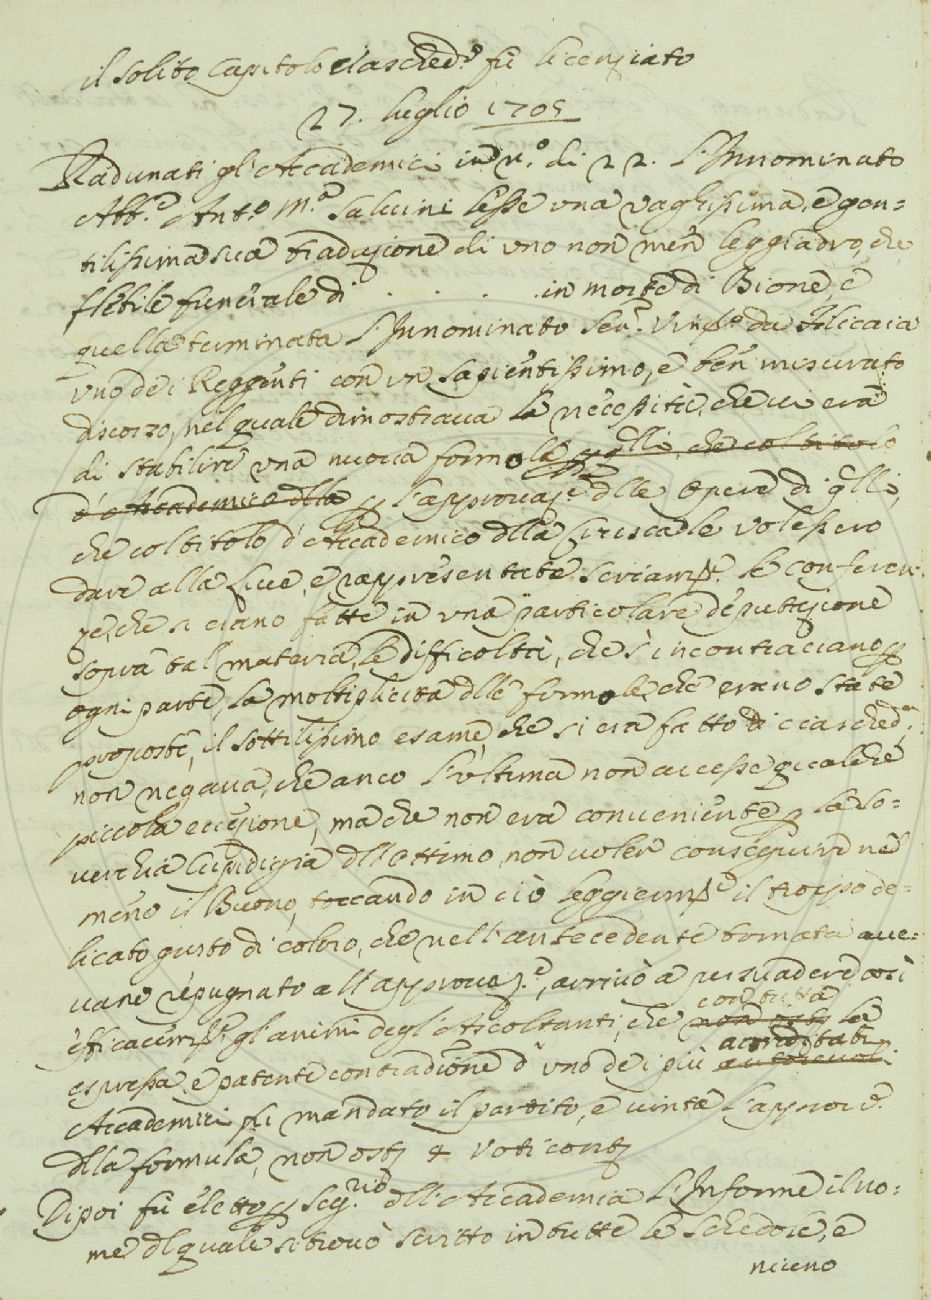 il solito Capitolo ciasched.º fù licenziato
27. luglio 1705
Radunati gl'Accademici in n.º di 22. l'Innominato
Abb.e Ant.º M.a Saluini lesse una vaghissima, e gen=
tilissima sua traduzione di uno non men leggiadro, che
flebile funerale di . . . . . in morte di Bione e
quella terminata l'Innominato Sen.r Vinc.º da Filicaia
uno dei Reggenti con un sapientissimo, e ben misurato
discorso, nel quale dimostraua la necessità, che ui era
di stabilire una nuoua formola p qlli, che col titolo
d'Accademico dlla p l'approvaz.e dlle Opere di qlli,
che col titolo d'Accademico dlla Crusca le volessero
dare alla luce, e rappresentate seriam.e le conferen=
ze, che si erano fatte in una particolare deputazione
sopra tal materia, le difficoltà, che s'incontrauano p
ogni parte, la moltiplicità dlle formole che erano state
proposte, il sottilissimo esame, che si era fatto di ciasched.a
non negaua, che anco l'ultima non auesse qualche
piccola eccezione, ma che non era conueniente p la so=
uerchia Cupidigia dll'ottimo, non uoler conseguire ne
meno il Buono, toccando in ciò leggierm.e il troppo de=
licato gusto di coloro, che nell'antecedente tornata aue=
uano repugnato all'approvaz.e, arriuò a persuadere così
efficacem.e gl'animi degl'Ascoltanti, che non ostante con tutta la
espressa e patente contradizione d'uno dei più autoreuoli accreditati
Accademici fu mandato il partito, e uinta l'approu.e
dlla formula, non ost. 4 voti cont.
Dipoi fù eletto p Seg.rio dll'Accademia l'Informe il no=
me dl quale si trouò scritto in tutte le schedole, e